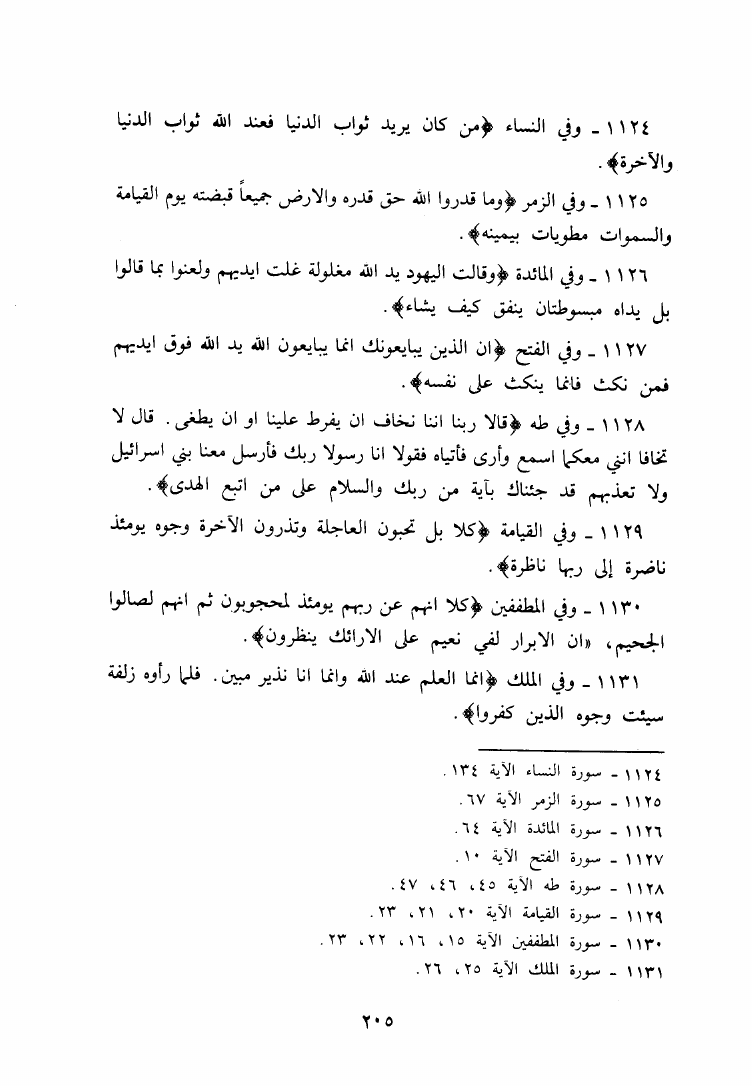 ١١٢٤ - وفي النساء ﴿من كان يريد ثواب الدنيا فعند الله ثواب الدنيا
والآخرة﴾.
١١٢٥ - وفي الزمر ﴿وما قدروا الله حق قدره والارض جميعاً قبضته يوم القيامة
والسموات مطويات بيمينه﴾.
١١٢٦ - وفي المائدة ﴿وقالت اليهود يد الله مغلولة غلت ايديهم ولعنوا بما قالوا
بل يداه مبسوطتان ينفق كيف يشاء﴾.
١١٢٧ - وفي الفتح ﴿ان الذين يبايعونك انما يبايعون الله يد الله فوق ايديهم
فمن نكث فانما ينكث على نفسه﴾.
١١٢٨ - وفي طه ﴿قالا ربنا اننا نخاف ان يفرط علينا او ان يطغى. قال لا
تخافا انني معكما اسمع وأرى فأتياه فقولا انا رسولا ربك فأرسل معنا بني اسرائيل
ولا تعذبهم قد جئناك بآية من ربك والسلام على من اتبع الهدى﴾.
١١٢٩ - وفي القيامة ﴿كلا بل تحبون العاجلة وتذرون الآخرة وجوه يومئذ
ناضرة إلى ربها ناظرة﴾.
١١٣٠ - وفي المطففين ﴿كلا انهم عن ربهم يومئذ لمحجوبون ثم انهم لصالوا
الجحيم، «ان الابرار لفي نعيم على الارائك ينظرون﴾.
١١٣١ - وفي الملك ﴿انما العلم عند الله وانما انا نذير مبين. فلما رأوه زلفة
سيئت وجوه الذين كفروا﴾.
١١٢٤ - سورة النساء الآية ١٣٤.
١١٢٥ - سورة الزمر الآية ٦٧.
١١٢٦ - سورة المائدة الآية ٦٤.
١١٢٧ - سورة الفتح الآية ١٠.
١١٢٨ - سورة طه الآية ٤٥، ٤٦، ٤٧.
١١٢٩ - سورة القيامة الآية ٢٠، ٢١، ٢٣.
١١٣٠ - سورة المطففين الآية ١٥، ١٦، ٢٢، ٢٣.
١١٣١ - سورة الملك الآية ٢٥، ٢٦.
٢٠٥